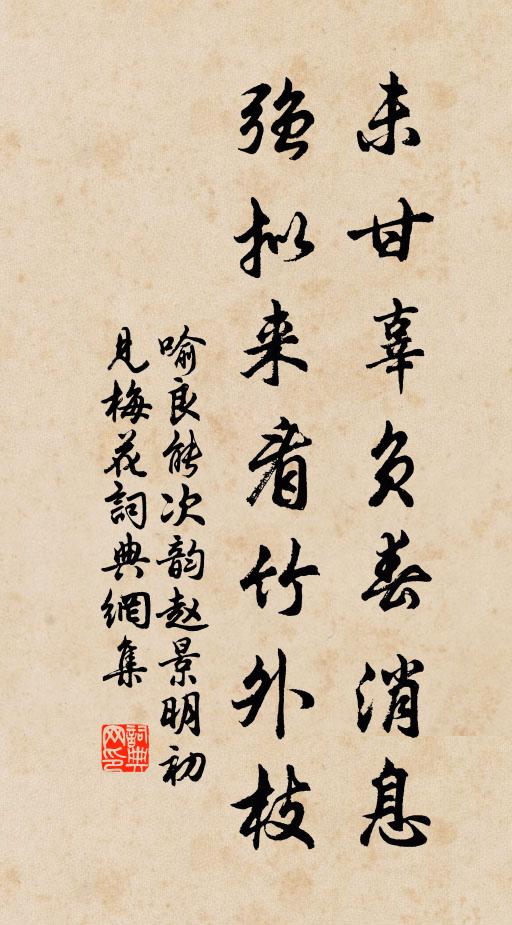 未甘辜负春消息
强拟来看竹外枝
喻良能次韵赵景明初
见梅花詞典網集
詞典网印